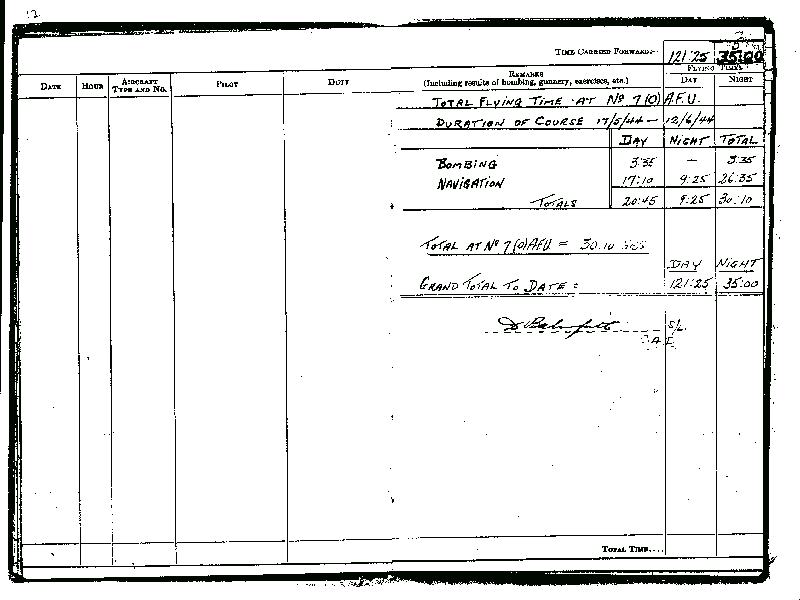 12
TIME CARRIED FORWARD:— 121·25 35:00
FLYING TIMES
DATE HOUR AIRCRAFT TYPE AND NO. PILOT DUTY REMARKS (Including results of bombing, gunnery, exercises, etc.) DAY NIGHT
TOTAL FLYING TIME AT Nº 7(O)A.F.U.
DURATION OF COURSE 17/5/44 — 12/6/44
DAY NIGHT TOTAL
BOMBING 3:35 — 3:35
NAVIGATION 17:10 9:25 26:35
TOTALS 20:45 9:25 30:10
TOTAL AT Nº 7(O)AFU = 30.10 HRS
DAY NIGHT
GRAND TOTAL TO DATE = 121:25 35:00
S/L
TOTAL TIME....